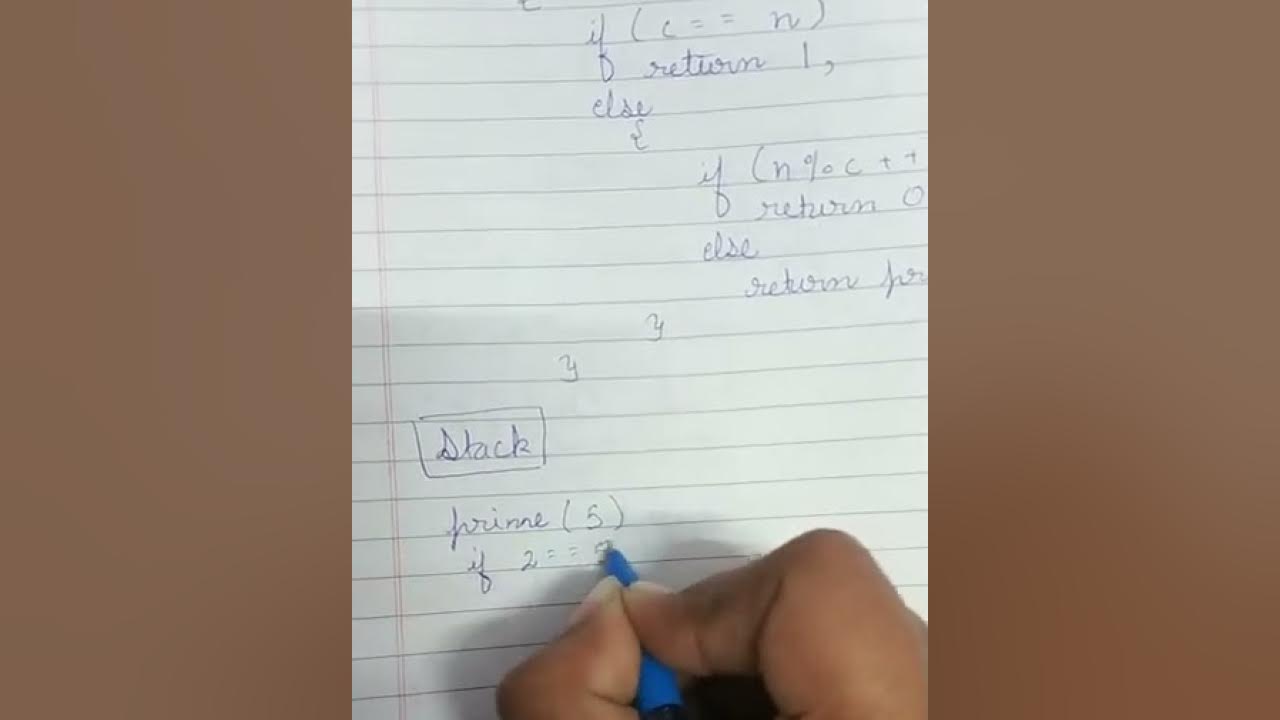 {
if (c == n)
return 1,
else
{
if (n%c++
return 0
else
return pr
}
}
Stack
prime (5)
if 2==